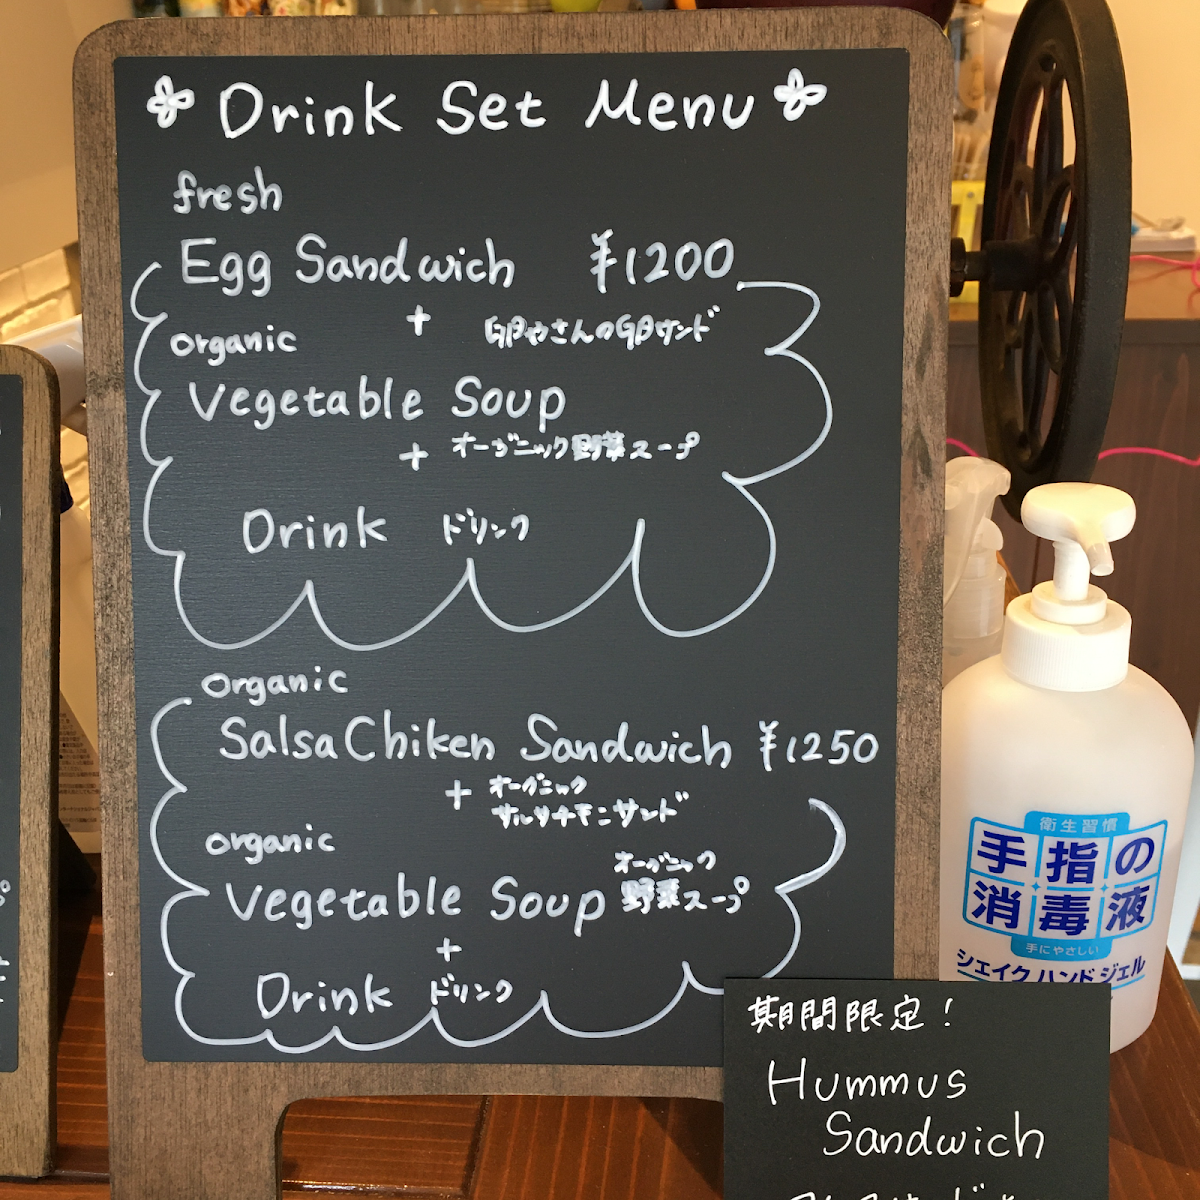 Drink Set Menu
fresh
Egg Sandwich ¥1200
+ 卵やさんの卵サンド
organic
Vegetable Soup
+ オーガニック野菜スープ
Drink ドリンク
organic
Salsa Chiken Sandwich ¥1250
+ オーガニック
サルサチキンサンド
organic
Vegetable Soup オーガニック
野菜スープ
+
Drink ドリンク
衛生習慣
手指の
消毒液
手にやさしい
シェイクハンドジェル
期間限定!
Hummus
Sandwich